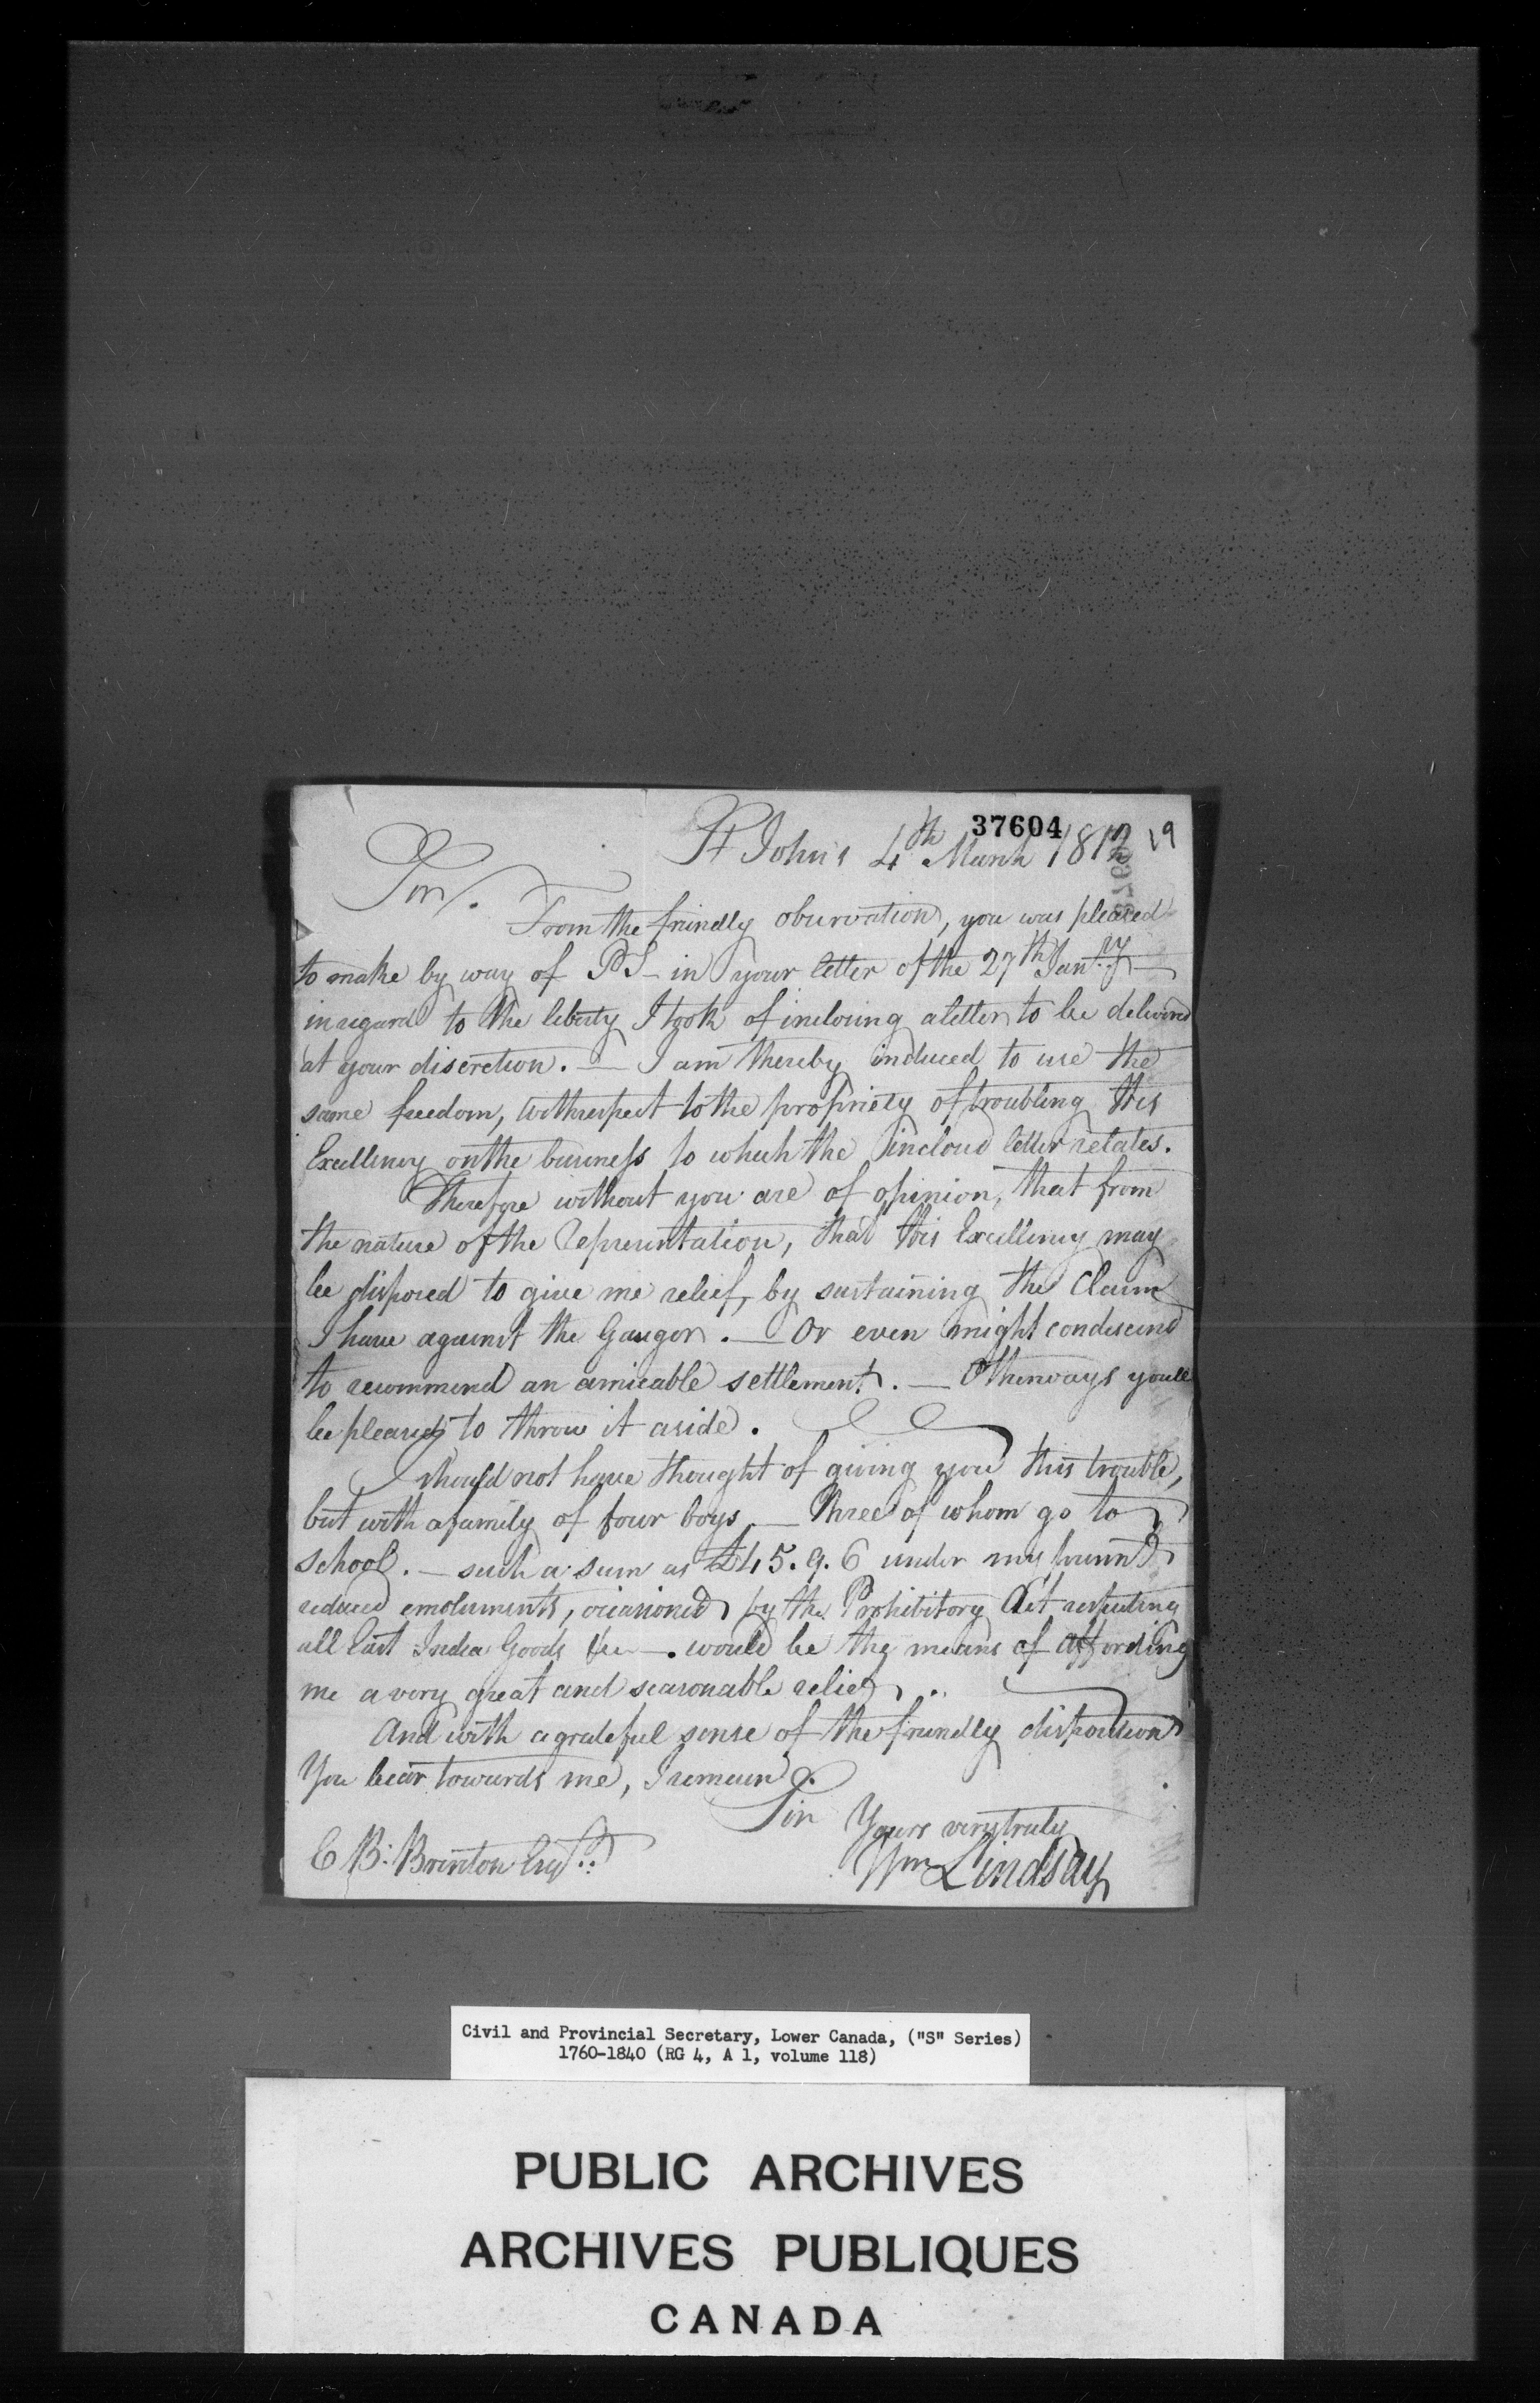 37604
St John's 4th March 1812 29
Sir.
From the friendly observation, you was pleased
to make by way of PS - in your letter of the 27th Jany. —
in regard to the liberty I took of inclosing a letter to be delivered
at your discretion. — I am thereby induced to use the
same freedom, with respect to the propriety of troubling His
Excellency on the business to which the inclosed letter relates.
Therefore without you are of opinion, that from
the nature of the Representation, that His Excellency may
be disposed to give me relief, by sustaining the Claim
I have against the Gauger. — Or even might condescend
to recommend an amicable settlement. — Otherways youll
be pleased to throw it aside.
I should not have thought of giving you this trouble,
but with a family of four boys — three of whom go to
school. — such a sum as £45.9.6 under my
reduced emoluments, occasioned by the Prohibitory Act respecting
all East India Goods &c —. would be the means of affording
me a very great and seasonable relief.
And with a grateful sense of the friendly disposition
You bear towards me, I remain.
Sir Yours very truly
Wm Lindsay
E B: Brenton Esqr.
Civil and Provincial Secretary, Lower Canada, ("S" Series)
1760-1840 (RG 4, A 1, volume 118)
PUBLIC ARCHIVES
ARCHIVES PUBLIQUES
CANADA